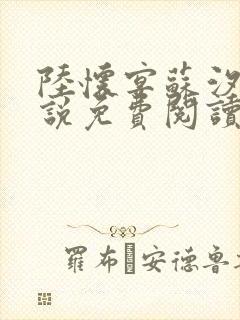 陸懷宴蘇汐
說免費閱讀
羅布 安德魯